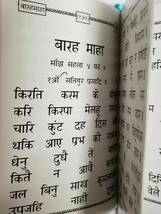 बारहमाहा
१३७
बारह माहा
मांझ महला ५ घरु ४
१ओं सतिगुर प्रसादि ॥
किरति करम के
करि किरपा मेलहु
चारि कुंट दह दिस
थकि आए प्रभ की
धेनु दुधै ते
कितै न आवै
जल बिनु साख कुमला
उपजहि नाही